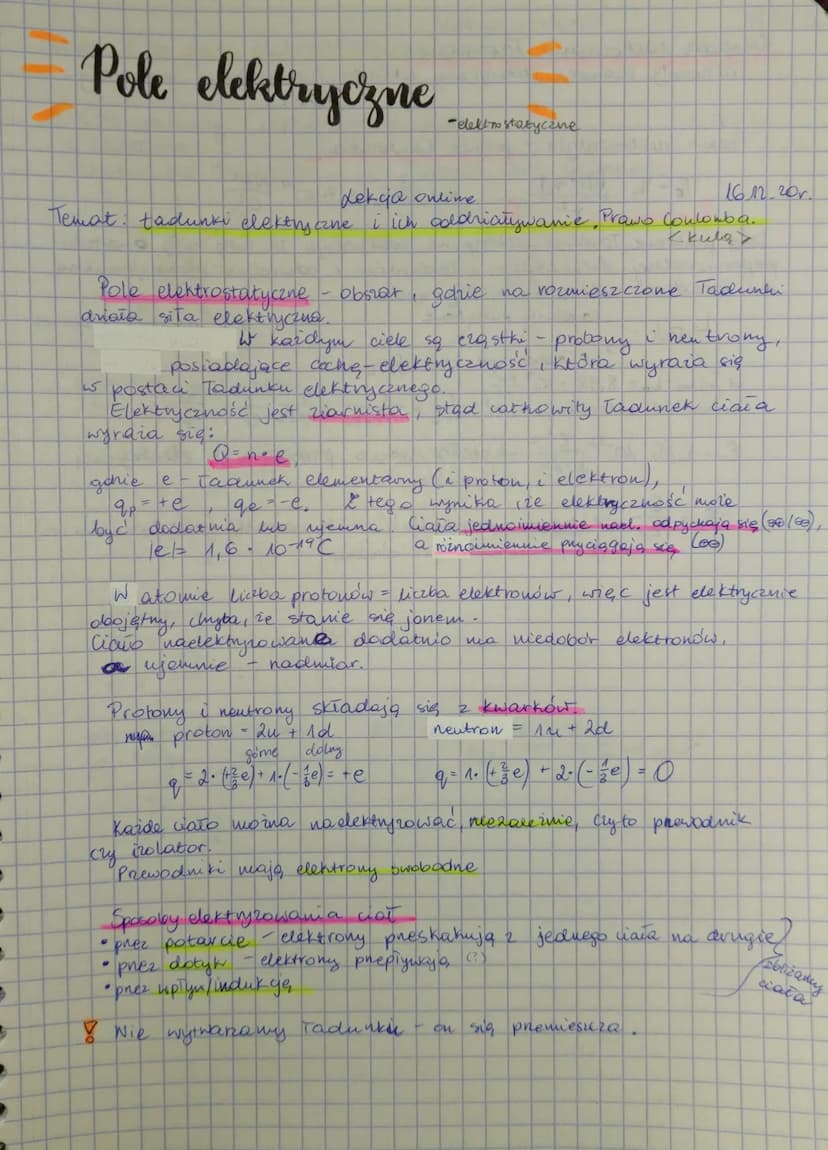 Pole elektryczne
- elektrostatyczne
Lekcja online 16.12.20r.
Temat: Ładunki elektryczne i ich oddziaływanie. Prawo Coulomba.
<kulą>
Pole elektrostatyczne - obszar, gdzie na rozmieszczone ładunki
działa siła elektryczna.
W każdym ciele są cząstki - protony i neutrony,
posiadające cechę - elektryczność, która wyraża się
w postaci ładunku elektrycznego.
Elektryczność jest ziarnista, stąd całkowity ładunek ciała
wyraża się:
Q = n · e,
gdzie e - ładunek elementarny (i proton, i elektron),
qp = +e, qe = -e. Z tego wynika, że elektryczność może
być dodatnia lub ujemna. Ciała jednoimiennie nael. odpychają się (⊕⊕/⊖⊖),
|e| = 1,6 · 10⁻¹⁹C a różnoimiennie przyciągają się (⊕⊖)
W atomie liczba protonów = liczba elektronów, więc jest elektrycznie
obojętny, chyba, że stanie się jonem.
Ciało naelektryzowane dodatnio ma niedobór elektronów,
a ujemnie - nadmiar.
Protony i neutrony składają się z kwarków.
np. proton = 2u + 1d neutron = 1u + 2d
górne dolny
q = 2·(+⅔e) + 1·(-⅓e) = +e q = 1·(+⅔e) + 2·(-⅓e) = 0
Każde ciało można naelektryzować, niezależnie, czy to przewodnik
czy izolator.
Przewodniki mają elektrony swobodne
Sposoby elektryzowania ciał
• przez potarcie - elektrony przeskakują z jednego ciała na drugie
• przez dotyk - elektrony przepływają (?)
• przez wpływ/indukcję
zbliżamy
ciała
! Nie wytwarzamy ładunku - on się przemieszcza.